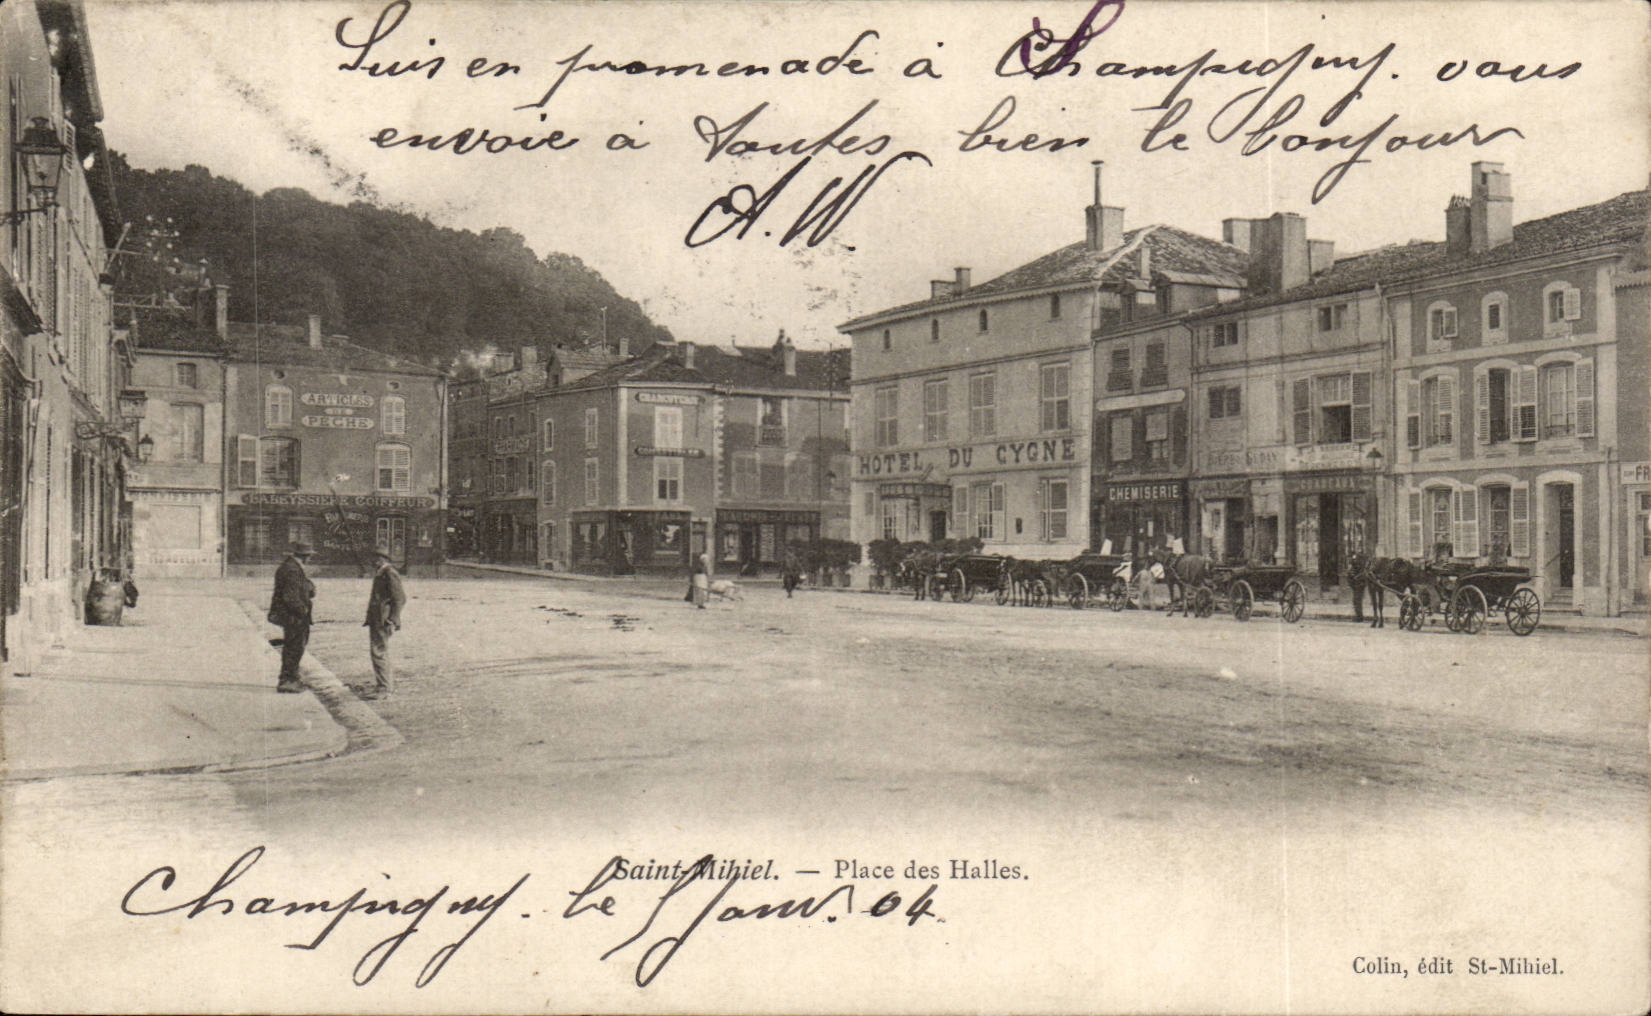 Suis en promenade à Champigny. vous
envoie à toutes bien le bonjour
A. W.
ARTICLES
DE
PÊCHE
LABEYSSIERE COIFFEUR
HOTEL DU CYGNE
CHEMISERIE
Saint-Mihiel. — Place des Halles.
Champigny. le 5 Janv. 04.
Colin, édit St-Mihiel.